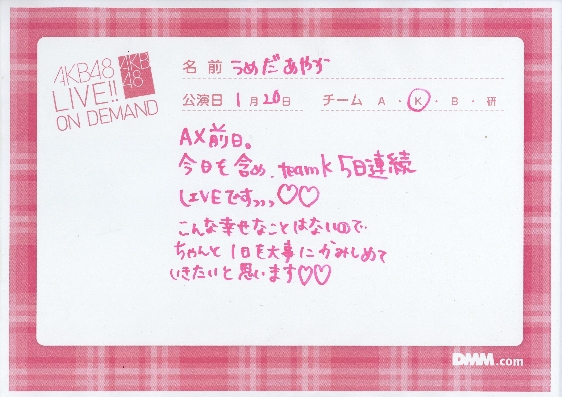 AKB48
LIVE!!
ON DEMAND
AKB
48
名前 うめだあやか
公演日 1月20日 チーム A・K・B・研
AX前日。
今日も含め、teamK 5日連続
LIVEですっっっ♡♡
こんな幸せなことはないので
ちゃんと1日を大事にかみしめて
いきたいと思います♡♡
DMM.com